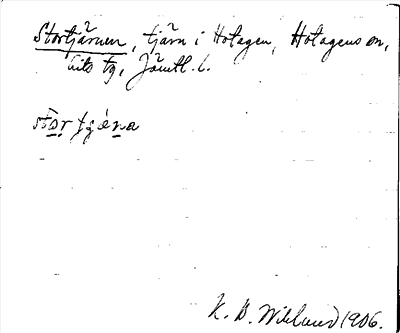 Stortjärnen, tjärn i Hotagen, Hotagens sn,
Lits tg, Jämtl. l.
K. B. Wiklund 1906.